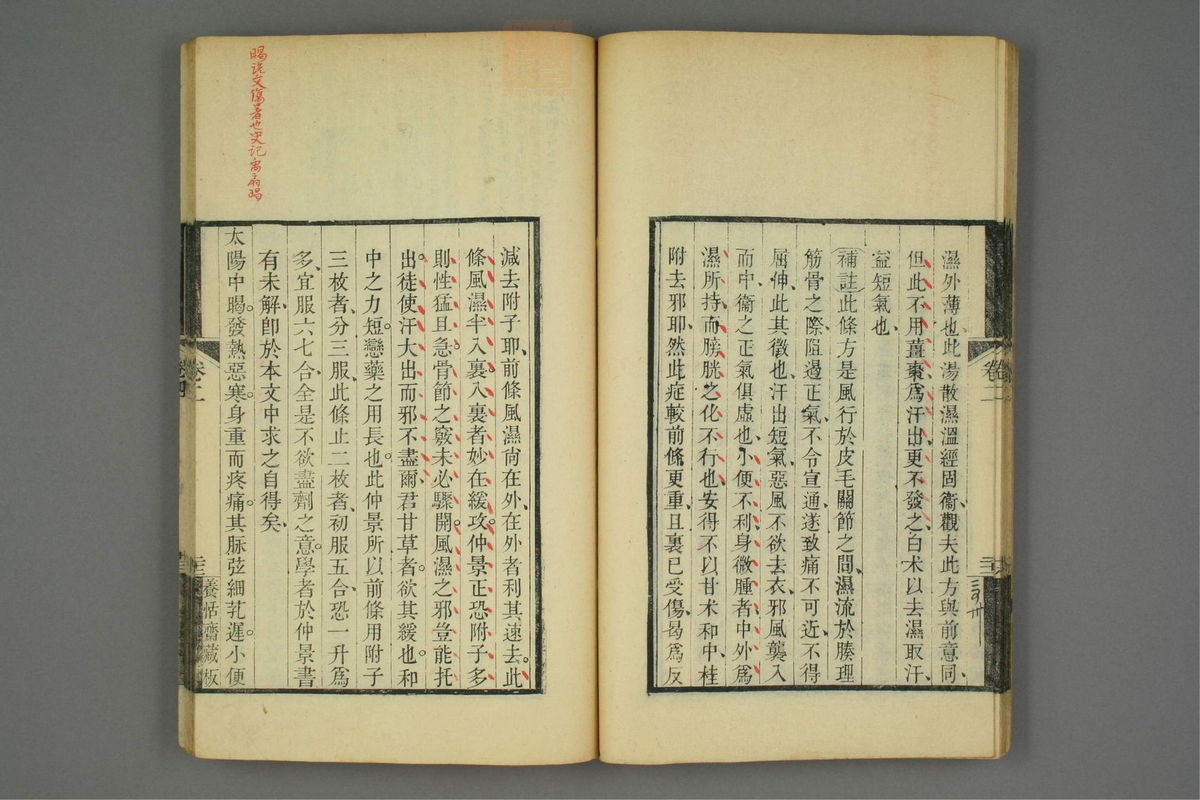 濕外薄也此湯散濕溫經固衞觀夫此方與前意同
但此不用薑棗爲汗出更不發之白术以去濕取汗
益短氣也
補註此條方是風行於皮毛關節之間濕流於腠理
筋骨之際阻遏正氣不令宣通遂致痛不可近不得
屈伸此其徵也汗出短氣惡風不欲去衣邪風襲入
而中衞之正氣俱虛也小便不利身微腫者中外爲
濕所持而膀胱之化不行也安得不以甘术和中桂
附去邪耶然此症較前條更重且裏已受傷曷爲反
卷二
減去附子耶前條風濕尙在外在外者利其速去此
條風濕半入裏入裏者妙在緩攻仲景正恐附子多
則性猛且急骨節之竅未必驟開風濕之邪豈能托
出徒使汗大出而邪不盡爾君甘草者欲其緩也和
中之力短戀藥之用長也此仲景所以前條用附子
三枚者分三服此條止二枚者初服五合恐一升爲
多宜服六七合全是不欲盡劑之意學者於仲景書
有未解卽於本文中求之自得矣
太陽中暍發熱惡寒身重而疼痛其脉弦細芤遲小便
卷二
養恬齋藏板
暍說文傷暑也史記禹扇暍